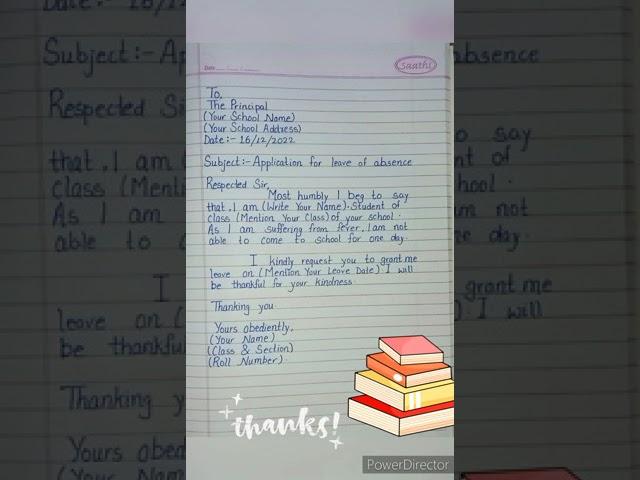 Date
Saathi
To,
The Principal
(Your School Name)
(Your School Address)
Date:- 16/12/2022
Subject:- Application for leave of absence
Respected Sir,
Most humbly I beg to say
that, I am (Write Your Name). Student of
class (Mention Your Class) of your school.
As I am suffering from fever, I am not
able to come to school for one day.
I kindly request you to grant me
leave on (Mention Your Leave Date). I will
be thankful for your kindness.
Thanking you.
Yours obediently,
(Your Name)
(Class & Section)
(Roll Number).
thanks!
PowerDirector